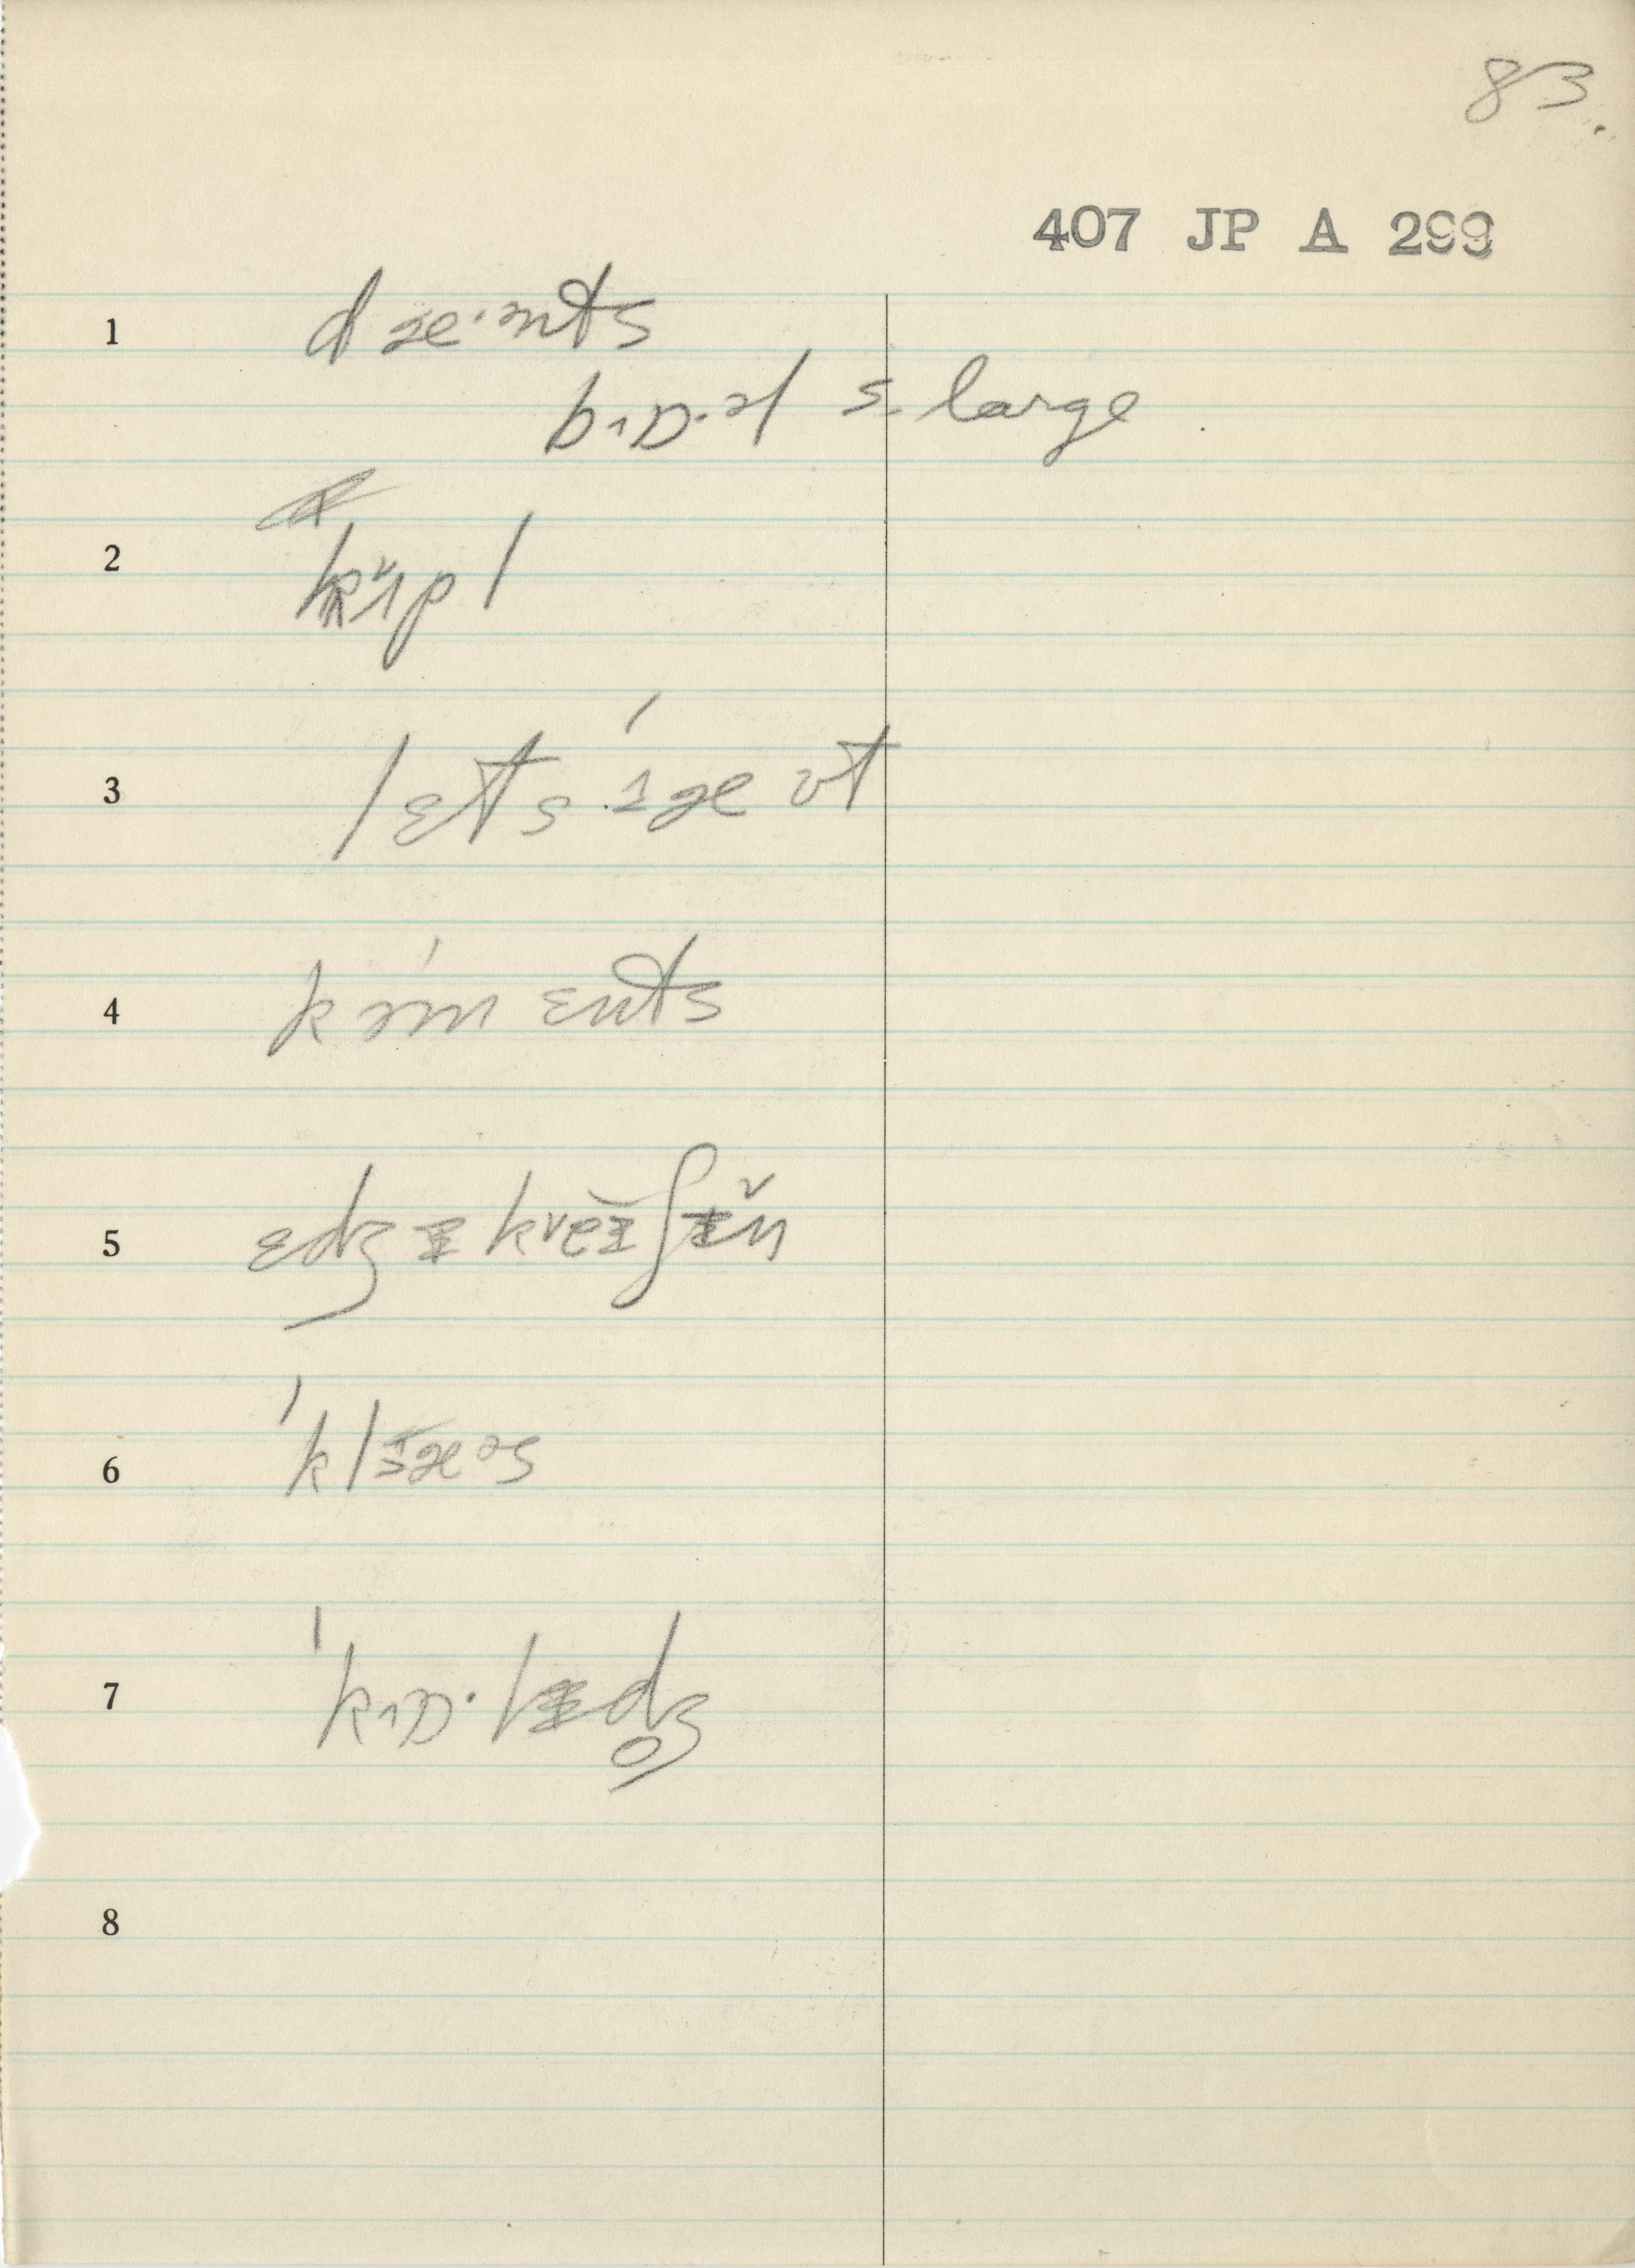 83.
407 JP A 299
1 dæ·nts
bɪɒ·əl s. large
2 kɪ̌pl
3 lɛts ɪ́ æ ʊt
4 kə́m ɛnts
5 ɛdʒᵻ kveᵻ̆ʃᵻ̆n
6 ˈklᵻ̄æəs
7 ˈkɪɒ·lᵻdʒ̥
8